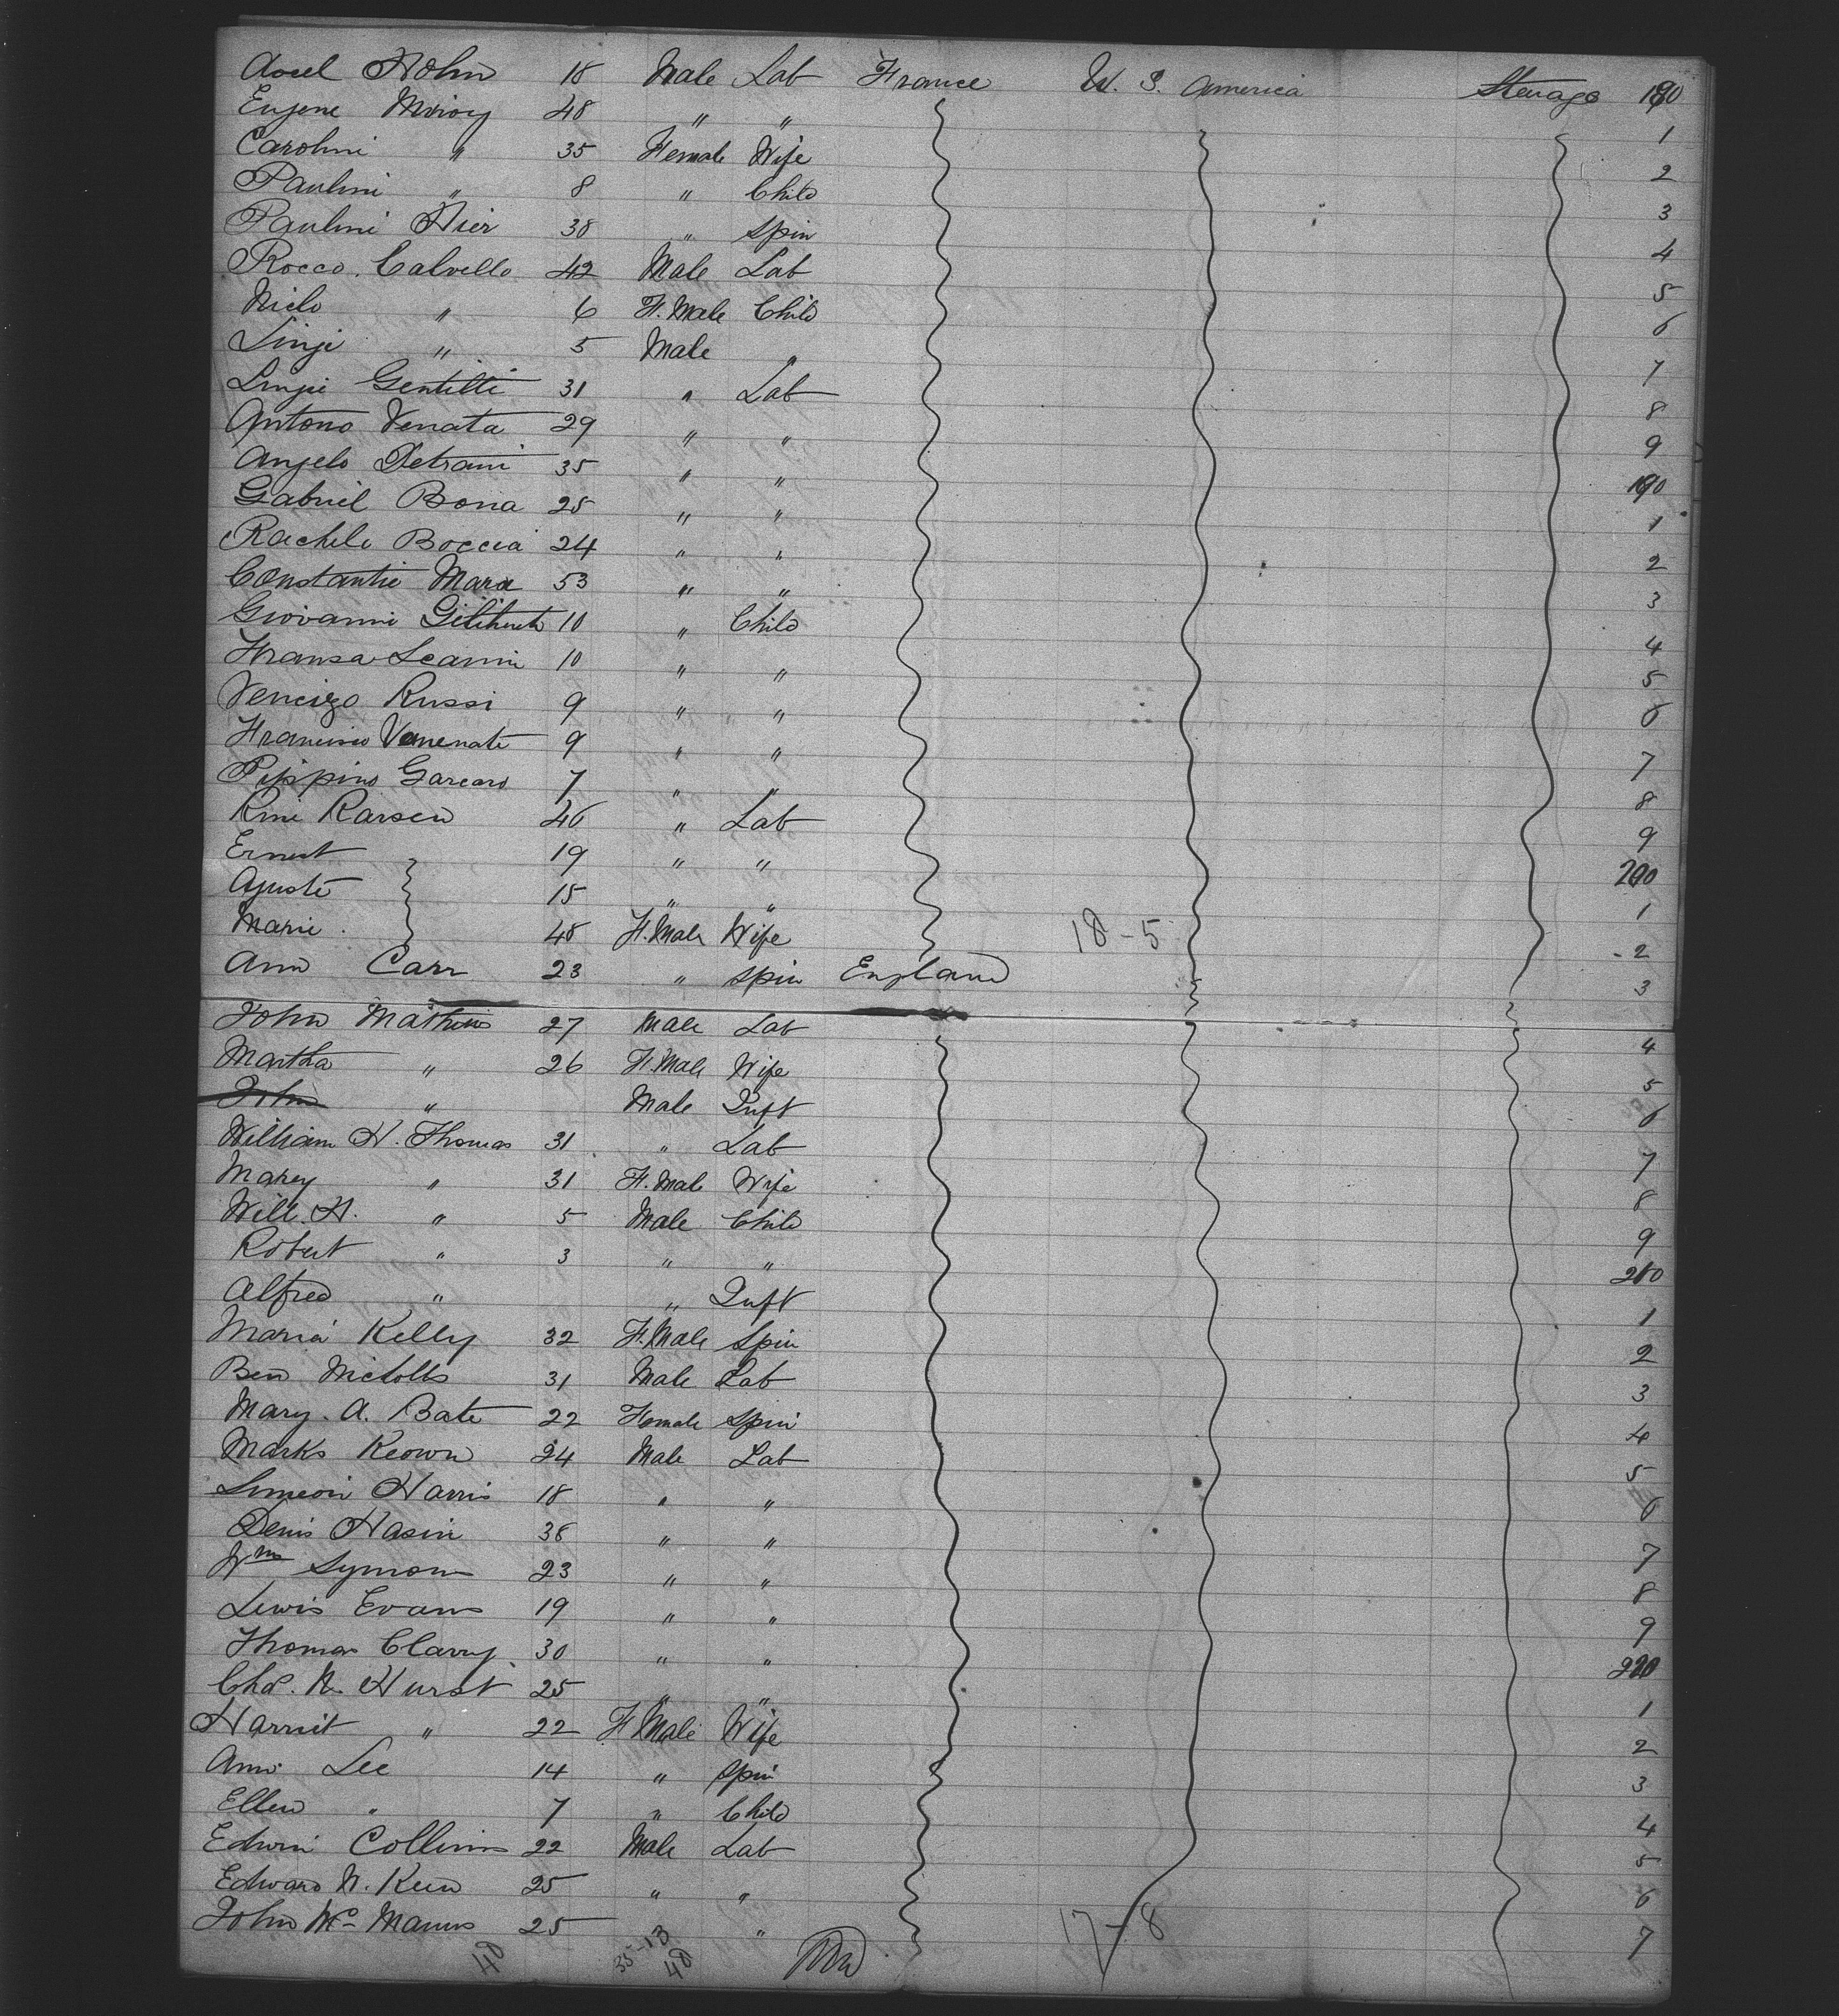 Axel Hohn 18 Male Lab France U. S. America Steerage 180
Eugene Miroy 48 " " 1
Carolini " 35 Female Wife 2
Paulini " 8 " Child 3
Paulini Hier 38 " Spin 4
Rocco Calvello 42 Male Lab 5
Niclo " 6 F. Male Child 6
Linji " 5 Male " 7
Linjie Gentilli 31 " Lab 8
Antono Venata 29 " " 9
Angelo Petrani 35 " " 190
Gabriel Bona 25 " " 1
Racheli Boccia 24 " " 2
Constantie Mara 53 " " 3
Giovanni 10 " Child 4
Fransa Leanni 10 " " 5
Vencizo Russi 9 " " 6
Francisco Venenate 9 " " 7
Pippino Garcaro 7 " " 8
Rine Rarsen 46 " Lab 9
Ernest 19 " " 200
Aguste 15 " " 1
Marie 48 F. Male Wife 18-5 2
Ann Carr 23 " Spin England 3
John Mathews 27 Male Lab 4
Martha " 26 F. Male Wife 5
John " Male Inft 6
William H. Thomas 31 " Lab 7
Marey " 31 F. Male Wife 8
Will. H. " 5 Male Child 9
Robert " 3 " " 210
Alfred " " Inft 1
Maria Kelly 32 F. Male Spin 2
Ben Nicholls 31 Male Lab 3
Mary. A. Bate 22 Female Spin 4
Marks Keown 24 Male Lab 5
Simeon Harris 18 " " 6
Denis Hasin 38 " " 7
Wm Symons 23 " " 8
Lewis Evans 19 " " 9
Thomas Clavey 30 " " 220
Chas. N. Hurst 25 " " 1
Harriet " 22 F Male Wife 2
Ann Lee 14 " Spin 3
Ellen " 7 " Child 4
Edwin Collins 22 Male Lab 5
Edward N. Keen 25 " " 6
John Mc Manus 25 " 17-8 7
48 35-13
48